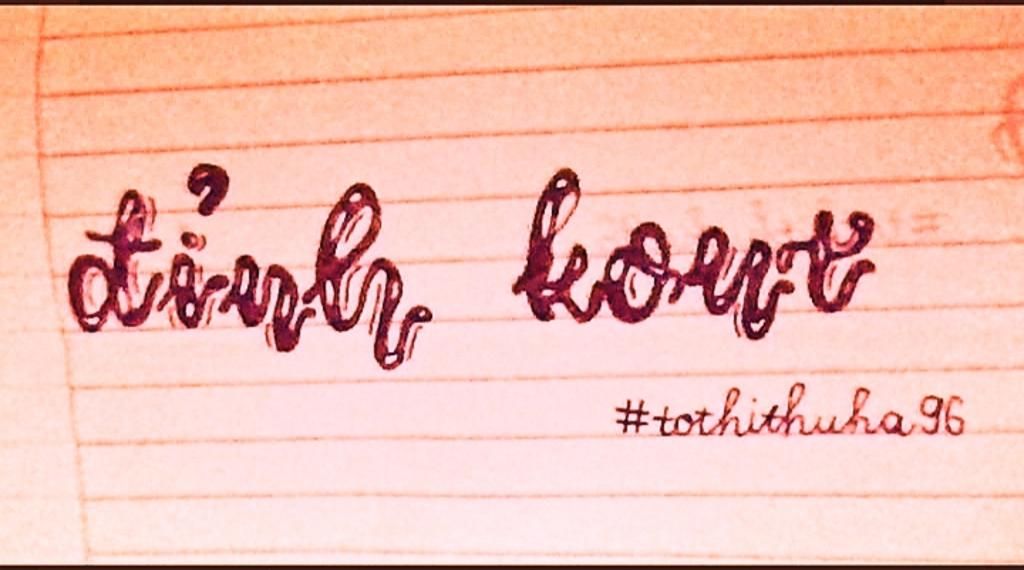 đỉnh kout
#tothithuha96